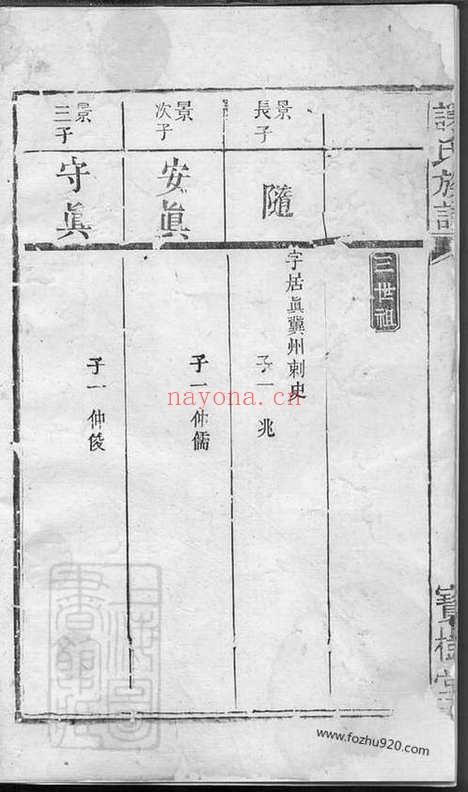 謝氏族譜
寶樹堂
三世祖
景長子
隨
字居眞冀州刺史
子一兆
景次子
安眞
子一仲儒
景三子
守眞
子一仲倰
nayona.cn
www.fozhu920.com